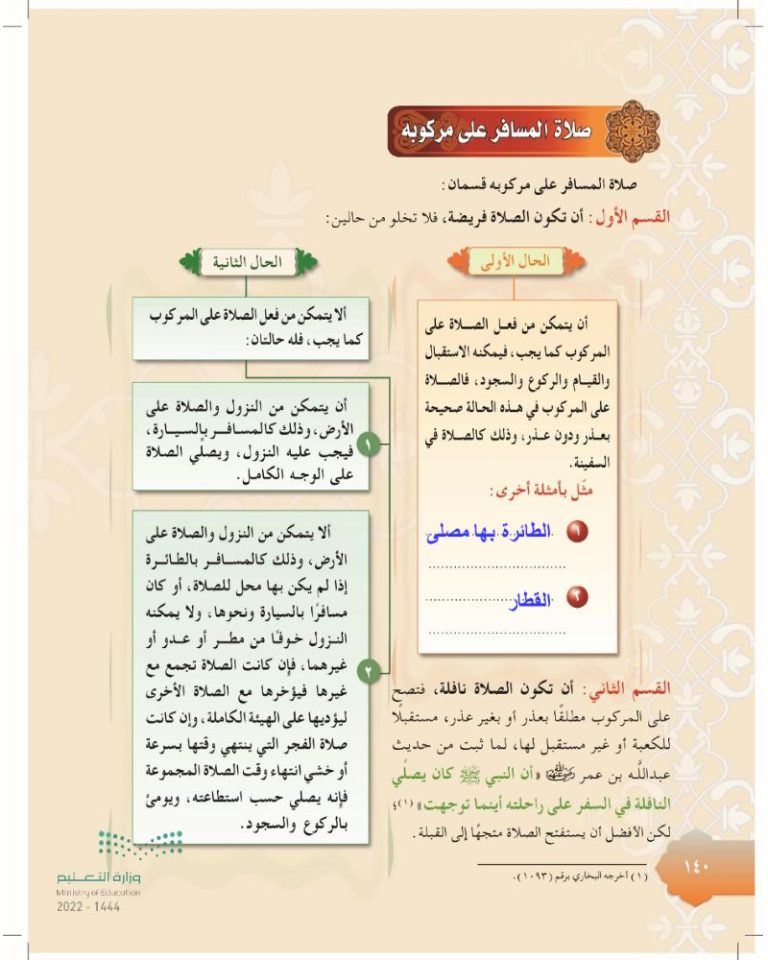 صلاة المسافر على مركوبة
صلاة المسافر على مركوبه قسمان:
القسم الأول: أن تكون الصلاة فريضة، فلا تخلو من حالين:
الحال الأولى
أن يتمكن من فعل الصلاة على
المركوب كما يجب، فيمكنه الاستقبال
والقيام والركوع والسجود، فالصلاة
على المركوب في هذه الحالة صحيحة
بعذر ودون عذر، وذلك كالصلاة في
السفينة.
مثّل بأمثلة أخرى:
١ الطائرة بها مصلى
٢ القطار
الحال الثانية
ألا يتمكن من فعل الصلاة على المركوب
كما يجب، فله حالتان:
١
أن يتمكن من النزول والصلاة على
الأرض، وذلك كالمسافر بالسيارة،
فيجب عليه النزول، ويصلي الصلاة
على الوجه الكامل.
٢
ألا يتمكن من النزول والصلاة على
الأرض، وذلك كالمسافر بالطائرة
إذا لم يكن بها محل للصلاة، أو كان
مسافرًا بالسيارة ونحوها، ولا يمكنه
النزول خوفًا من مطر أو عدو أو
غيرهما، فإن كانت الصلاة تجمع مع
غيرها فيؤخرها مع الصلاة الأخرى
ليؤديها على الهيئة الكاملة، وإن كانت
صلاة الفجر التي ينتهي وقتها بسرعة
أو خشي انتهاء وقت الصلاة المجموعة
فإنه يصلي حسب استطاعته، ويومئ
بالركوع والسجود.
القسم الثاني: أن تكون الصلاة نافلة، فتصح
على المركوب مطلقًا بعذر أو بغير عذر، مستقبلًا
للكعبة أو غير مستقبل لها، لما ثبت من حديث
عبداللَّه بن عمر رضي الله عنهما «أن النبي ﷺ كان يصلِّي
النافلة في السفر على راحلته أينما توجهت» (١)؛
لكن الأفضل أن يستفتح الصلاة متجهًا إلى القبلة.
(١) أخرجه البخاري برقم (١٠٩٣).
١٤٠
وزارة التعليم
Ministry of Education
2022 - 1444